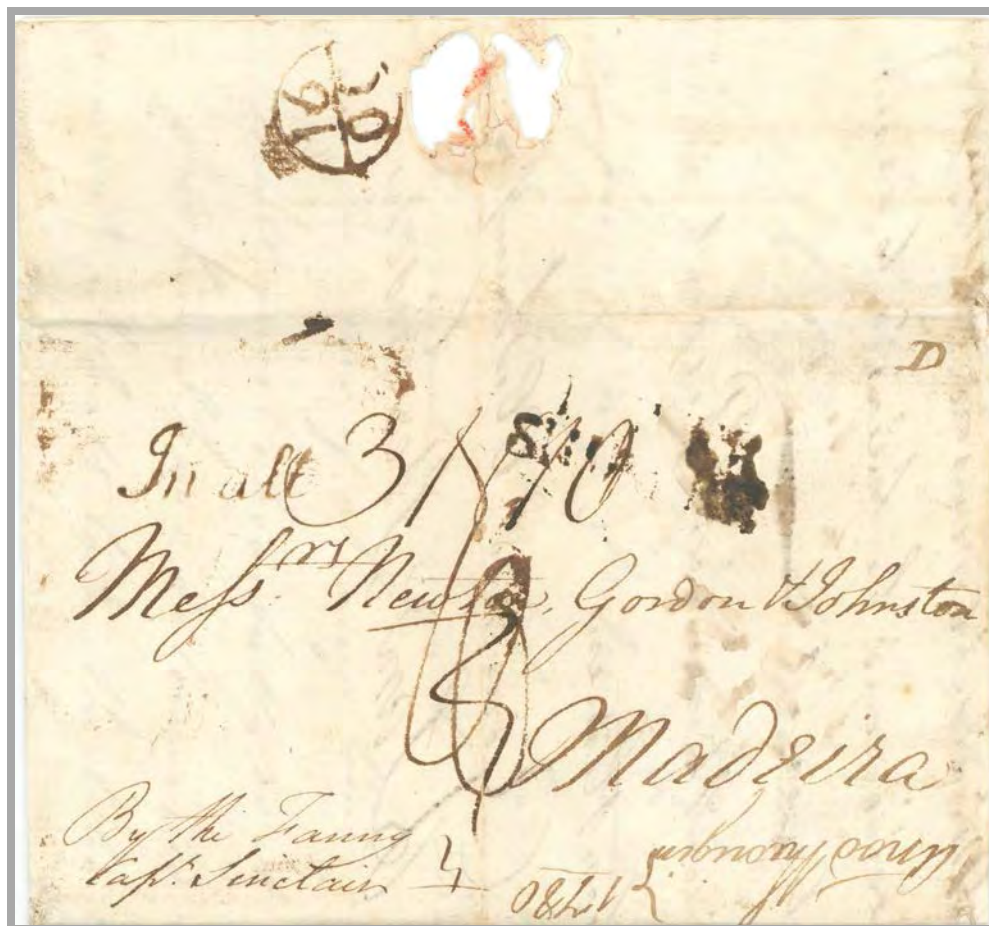 16
OC
D
In all 3/10
Mess.rs Newton, Gordon & Johnston
Madeira
By the Fanny
Capt. Sinclair
1780